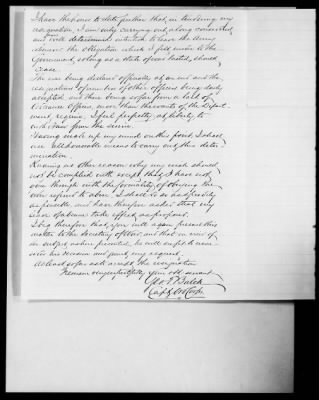 I have the honor to state further that, in tendering my
resignation, I am only carrying out a long considered
and well determined intention to leave the Army
whenever the obligation which I felt under to the
Government, so long as a state of war lasted, should
cease.
The war being declared officially at an end and the
resignations of numbers of other officers being daily
accepted and there being so far from a lack of
Ordnance Officers, more than the wants of the Depart-
ment require, I feel perfectly at liberty to
withdraw from the service.
Having made up my mind on this point, I shall
use all honorable means to carry out this deter-
mination.
Knowing no other reason why my wish should
not be complied with except that I have not
gone through with the formality of obeying the
order referred to above, I shall do so as speedily
as possible and have therefore asked that my
leave of absence take effect as proposed.
I beg therefore that you will again present this
matter to the Secretary of War and that in view of
the subject as here presented, he will see fit to recon-
sider his decision and grant my request,
at least so far as to accept the resignation
I remain very respectfully your obt servant
Geo. T. Balch
Capt of Ord Corps